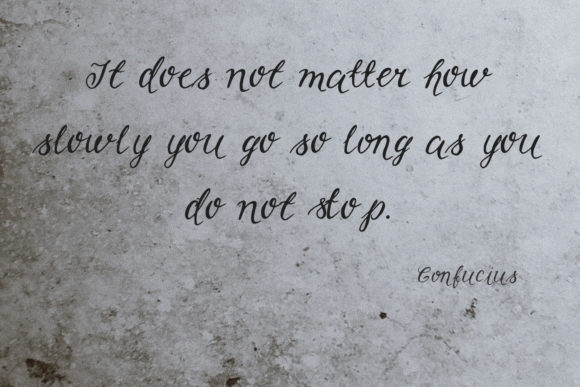 It does not matter how
slowly you go so long as you
do not stop.
Confucius